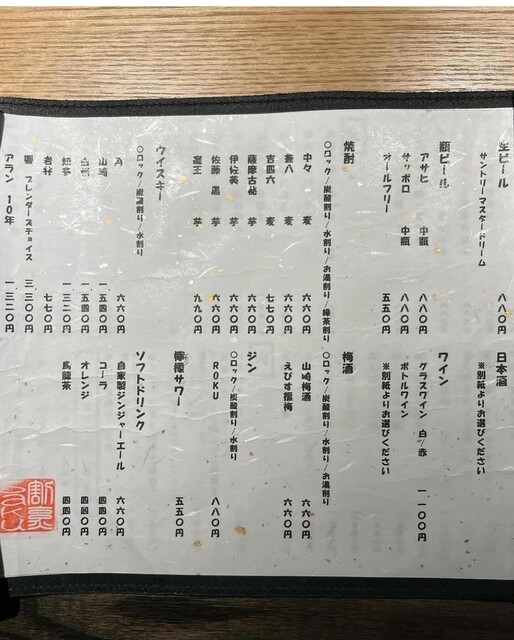 生ビール
サントリーマスタードリーム 八八〇円
瓶ビール
アサヒ 中瓶 八八〇円
サッポロ 中瓶 八八〇円
オールフリー 五五〇円
焼酎
〇ロック/炭酸割り/水割り/お湯割り/緑茶割り
中々 麦 六六〇円
兼八 麦 六六〇円
吉四六 麦 七七〇円
薩摩古秘 芋 六六〇円
伊佐美 芋 六六〇円
佐藤 黒 芋 六六〇円
魔王 芋 九九〇円
ウイスキー
〇ロック/炭酸割り/水割り
角 六六〇円
山崎 一、五四〇円
白州 一、五四〇円
知多 一、三二〇円
七七〇円
響 ブレンダーズチョイス 三、三〇〇円
アラン 10年 一、三二〇円
日本酒
※別紙よりお選びください
ワイン
グラスワイン 白/赤 一、一〇〇円
ボトルワイン
※別紙よりお選びください
梅酒
〇ロック/炭酸割り/水割り/お湯割り
山崎梅酒 六六〇円
えびす福梅 六六〇円
ジン
〇ロック/炭酸割り/水割り
ROKU 八八〇円
檸檬サワー 五五〇円
ソフトドリンク
自家製ジンジャーエール 六六〇円
コーラ 四四〇円
オレンジ 四四〇円
烏龍茶 四四〇円